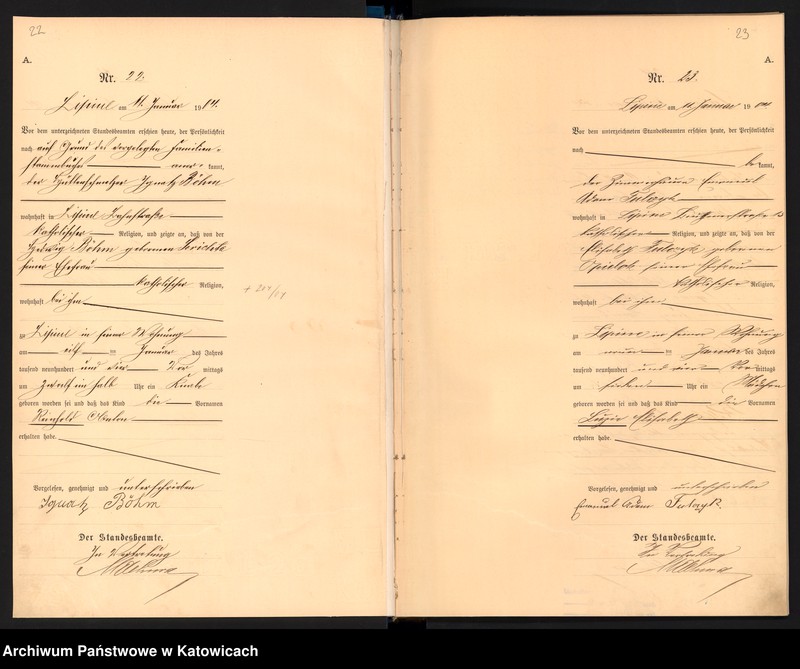 22
A.
Nr. 22.
Lipine am 11. Januar 1904.
Vor dem unterzeichneten Standesbeamten erschien heute, der Persönlichkeit
nach auf Grund des vorgelegten Familien-
stammbuches anerkannt,
der Ignatz Böhm
wohnhaft in Lipine Bahnstraße
katholischer Religion, und zeigte an, daß von der
Hedwig Böhm geborenen
seiner Ehefrau
katholischer Religion,
wohnhaft bei ihm
zu Lipine in seiner Wohnung
am elf ten Januar des Jahres
tausend neunhundert und vier Vor mittags
um zwölf ein halb Uhr ein Knabe
geboren worden sei und daß das Kind die Vornamen
Reinhold Anton
erhalten habe.
Vorgelesen, genehmigt und unterschrieben
Ignatz Böhm
Der Standesbeamte.
In Vertretung
23
A.
Nr. 23.
Lipine am 11. Januar 1904
Vor dem unterzeichneten Standesbeamten erschien heute, der Persönlichkeit
nach
be kannt,
der Zimmerhäuer Emanuel
Adam
wohnhaft in Lipine
katholischer Religion, und zeigte an, daß von der
Elisabeth geborenen
seiner Ehefrau
katholischer Religion,
wohnhaft bei ihm
zu Lipine in seiner Wohnung
am neun ten Januar des Jahres
tausend neunhundert und vier Vor mittags
um sieben Uhr ein Mädchen
geboren worden sei und daß das Kind die Vornamen
Luzie Elisabeth
erhalten habe.
Vorgelesen, genehmigt und unterschrieben
Emanuel Adam
Der Standesbeamte.
In Vertretung
Archiwum Państwowe w Katowicach